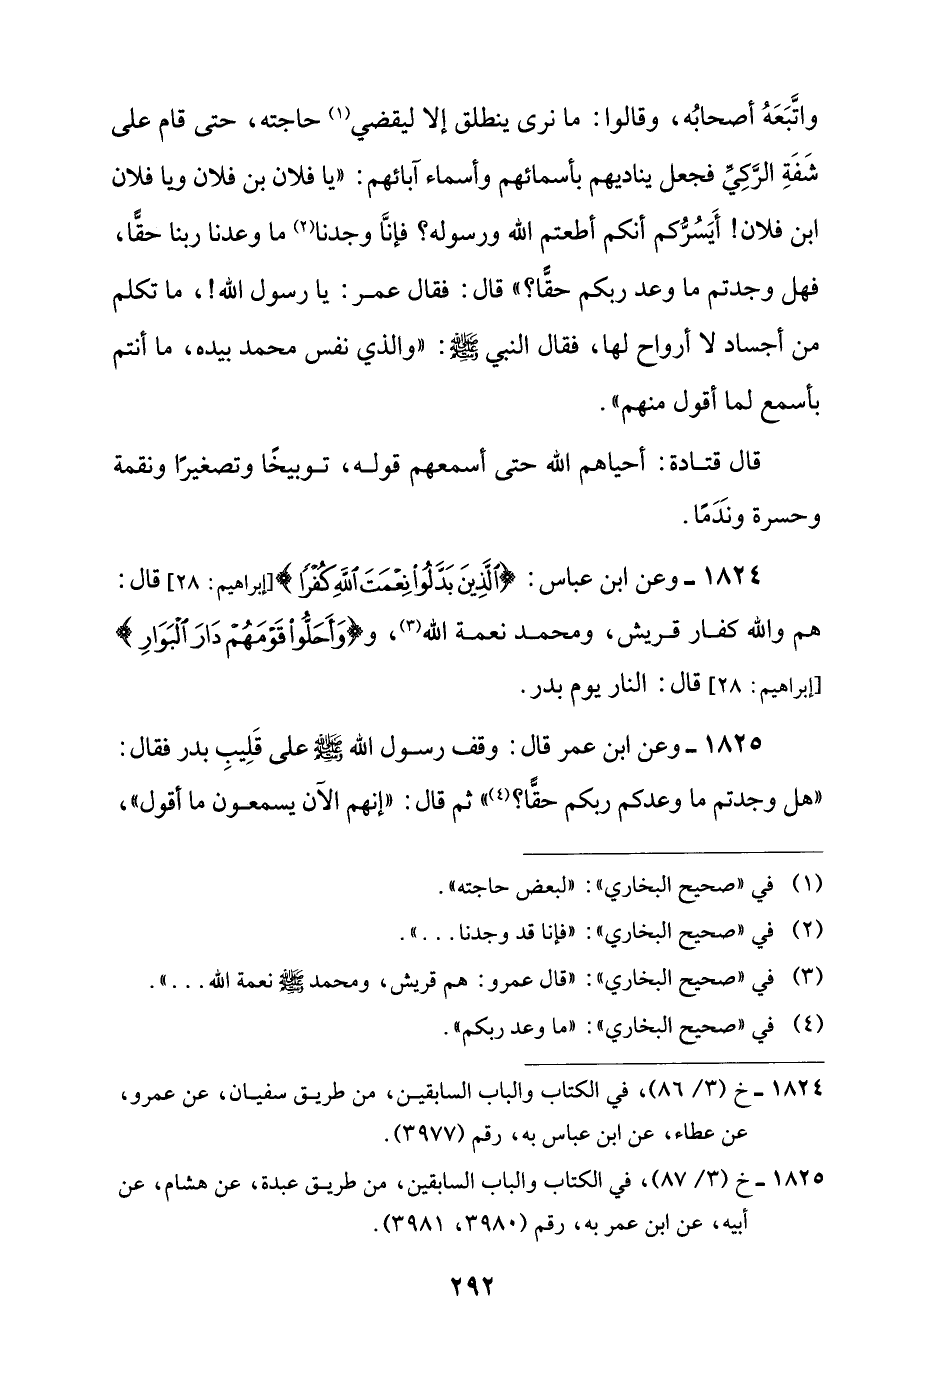 واتَّبَعَهُ أصحابُه، وقالوا: ما نرى ينطلق إلا ليقضي(١) حاجته، حتى قام على
شَفَةِ الرَّكِيِّ فجعل يناديهم بأسمائهم وأسماء آبائهم: «يا فلان بن فلان ويا فلان
ابن فلان! أَيَسُرُّكم أنكم أطعتم الله ورسوله؟ فإنَّا وجدنا(٢) ما وعدنا ربنا حقًّا،
فهل وجدتم ما وعد ربكم حقًّا؟» قال: فقال عمر: يا رسول الله!، ما تكلم
من أجساد لا أرواح لها، فقال النبي ﷺ: «والذي نفس محمد بيده، ما أنتم
بأسمع لما أقول منهم».
قال قتادة: أحياهم الله حتى أسمعهم قوله، توبيخًا وتصغيرًا ونقمة
وحسرة ونَدَمًا.
١٨٢٤ - وعن ابن عباس: ﴿ٱلَّذِينَ بَدَّلُواْ نِعْمَتَ ٱللَّهِ كُفْرًا﴾ [إبراهيم: ٢٨] قال:
هم والله كفار قريش، ومحمد نعمة الله(٣)، و﴿وَأَحَلُّواْ قَوْمَهُمْ دَارَ ٱلْبَوَارِ﴾
[إبراهيم: ٢٨] قال: النار يوم بدر.
١٨٢٥ - وعن ابن عمر قال: وقف رسول الله ﷺ على قَلِيبِ بدر فقال:
«هل وجدتم ما وعدكم ربكم حقًّا؟(٤)» ثم قال: «إنهم الآن يسمعون ما أقول»،
(١) في «صحيح البخاري»: «لبعض حاجته».
(٢) في «صحيح البخاري»: «فإنا قد وجدنا...».
(٣) في «صحيح البخاري»: «قال عمرو: هم قريش، ومحمد ﷺ نعمة الله...».
(٤) في «صحيح البخاري»: «ما وعد ربكم».
١٨٢٤ - خ (٣/ ٨٦)، في الكتاب والباب السابقين، من طريق سفيان، عن عمرو،
عن عطاء، عن ابن عباس به، رقم (٣٩٧٧).
١٨٢٥ - خ (٣/ ٨٧)، في الكتاب والباب السابقين، من طريق عبدة، عن هشام، عن
أبيه، عن ابن عمر به، رقم (٣٩٨٠، ٣٩٨١).
٢٩٢